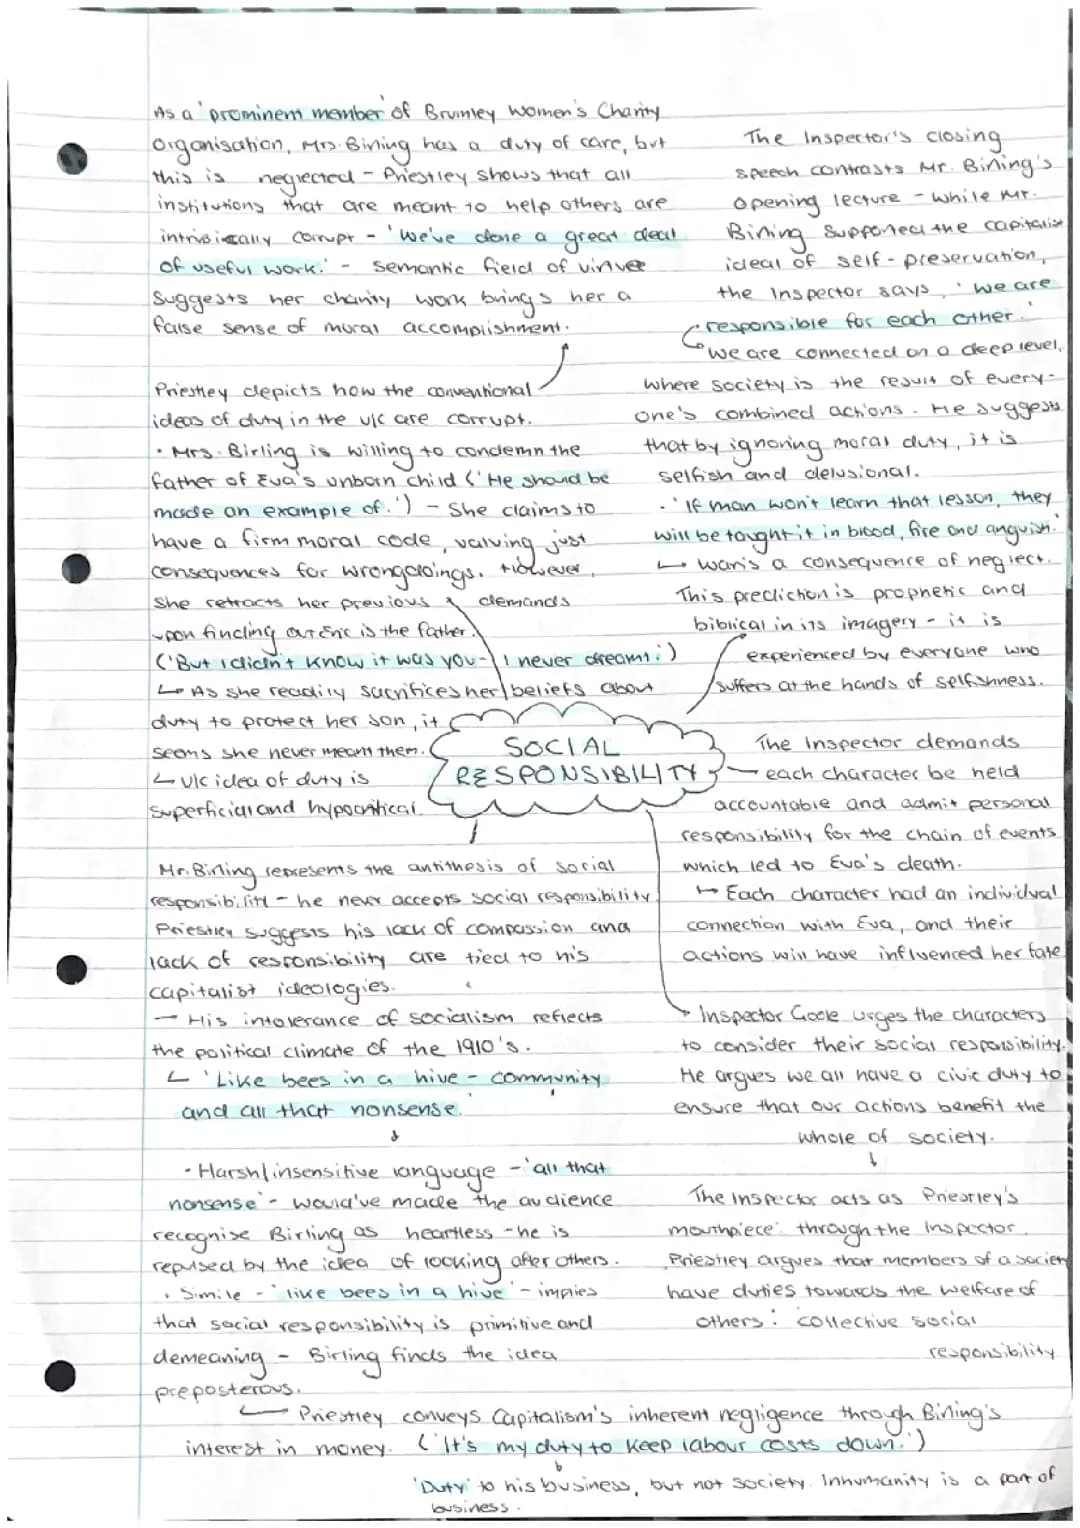 As a 'prominent member' of Brumley Women's Charity
Organisation, Mrs. Birling has a duty of care, but
this is neglected - Priestley shows that all
institutions that are meant to help others are
intrinsically corrupt - 'We've done a great deal
of useful work.' - semantic field of virtue
suggests her charity work brings her a
false sense of moral accomplishment.
Priestley depicts how the conventional
ideas of duty in the u/c are corrupt.
· Mrs. Birling is willing to condemn the
father of Eva's unborn child ('He should be
made an example of.') - She claims to
have a firm moral code, valuing just
consequences for wrongdoings. However,
she retracts her previous demands
upon finding out Eric is the father.
('But I didn't know it was you - I never dreamt.')
↳ As she readily sacrifices her beliefs about
duty to protect her son, it
seems she never meant them.
↳ U/c idea of duty is
superficial and hypocritical.
The Inspector's closing
speech contrasts Mr. Birling's
opening lecture - while Mr.
Birling supported the capitalist
ideal of self-preservation,
the Inspector says, 'we are
responsible for each other.'
↳ We are connected on a deep level,
where society is the result of every-
one's combined actions. He suggests
that by ignoring moral duty, it is
selfish and delusional.
· 'If man won't learn that lesson, they
will be taught it in blood, fire and anguish.'
↳ War is a consequence of neglect.
This prediction is prophetic and
biblical in its imagery - it is
experienced by everyone who
suffers at the hands of selfishness.
SOCIAL
RESPONSIBILITY
The Inspector demands
each character be held
accountable and admit personal
responsibility for the chain of events
which led to Eva's death.
↳ Each character had an individual
connection with Eva, and their
actions will have influenced her fate
Mr. Birling represents the antithesis of social
responsibility - he never accepts social responsibility
Priestley suggests his lack of compassion and
lack of responsibility are tied to his
capitalist ideologies.
- His intolerance of socialism reflects
the political climate of the 1910's.
↳ 'Like bees in a hive - community
and all that nonsense.'
· Harsh/insensitive language - 'all that
nonsense' - would've made the audience
recognise Birling as heartless - he is
repulsed by the idea of looking after others.
· Simile - 'like bees in a hive' - implies
that social responsibility is primitive and
demeaning - Birling finds the idea
preposterous.
↳ Priestley conveys Capitalism's inherent negligence through Birling's
interest in money. ('It's my duty to keep labour costs down.')
'Duty' to his business, but not society. Inhumanity is a part of
business.
Inspector Goole urges the characters
to consider their social responsibility.
He argues we all have a civic duty to
ensure that our actions benefit the
whole of society.
The Inspector acts as Priestley's
mouthpiece: through the Inspector,
Priestley argues that members of a society
have duties towards the welfare of
others: collective social
responsibility